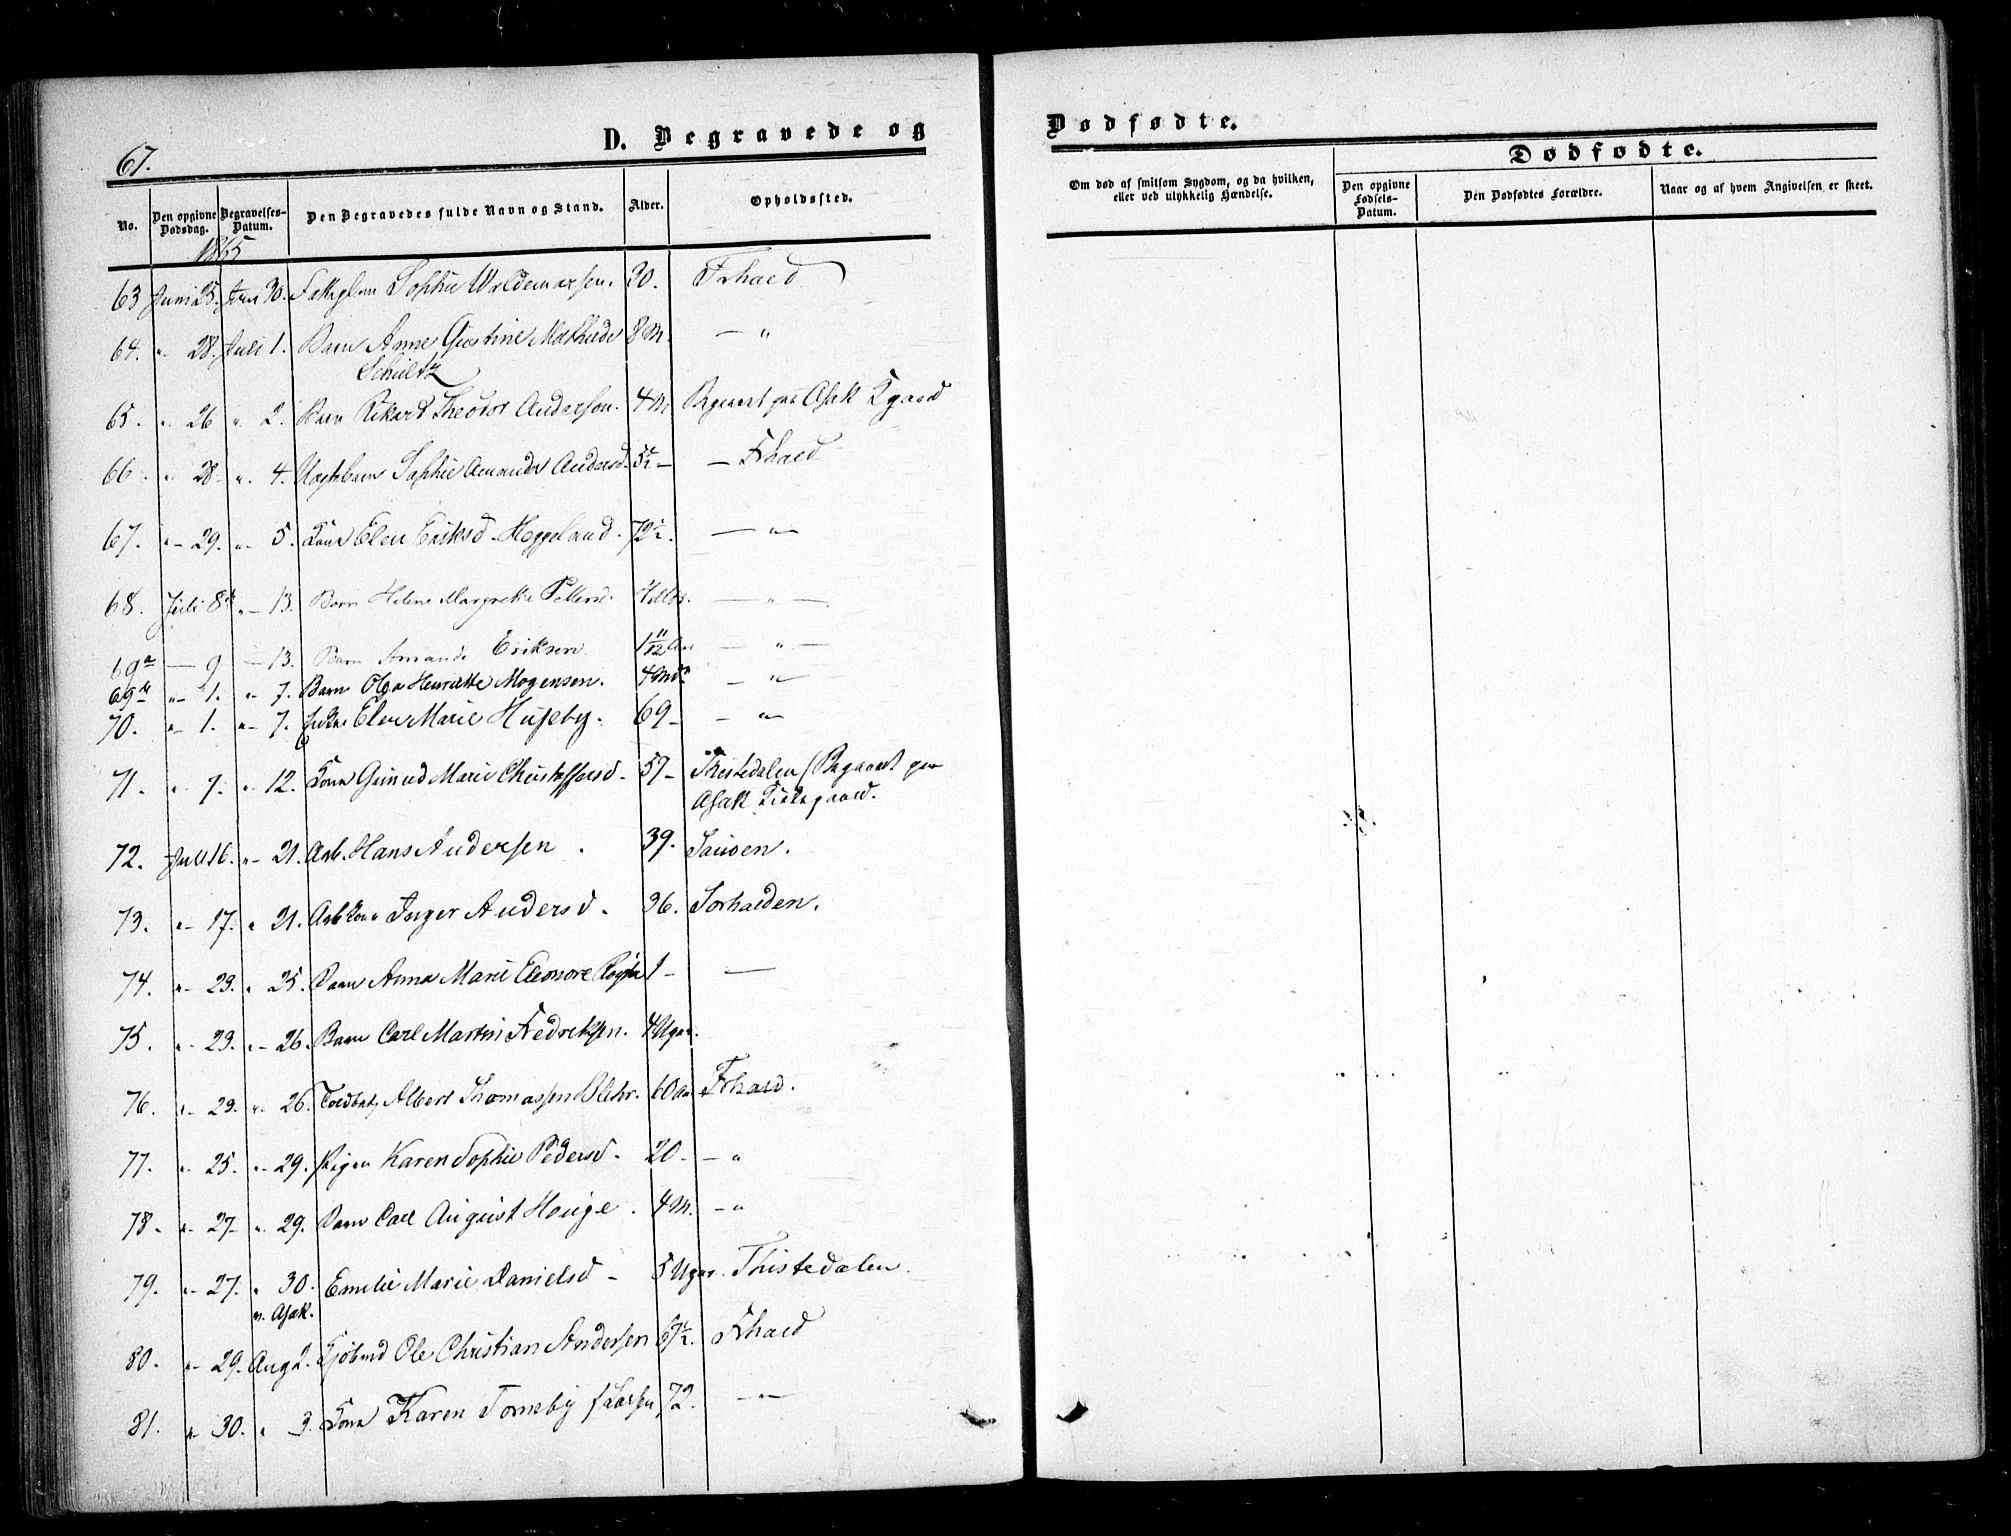 67.
D. Begravede og
No.
Den opgivne Dødsdag.
Begravelses-Datum.
Den Begravedes fulde Navn og Stand.
Alder.
Opholdssted.
1865
63 Juni 25. Juni 30. Sophie Waldemarsen. 30. Frhald
64. " 28. Juli 1. Barn Anne Gustine Mathilde 8 M. — "
Schultz
65. " 26 " 2. Barn Rikard Theodor Anderson. 4 M. paa Asak Kgaard
66. " 28. " 4. Sophie Amanda Andersd. 5½ — — Frhald
67. "– 29. "– 5. Kone Elen Eriksd. Heggeland. 72½. — " —
68. Juli 8de "– 13. Barn Helene Margrethe Petters. 4 — " —
69a — 9 — 13. Barn Amanda Eriksen 1 11/12 Aar — " —
69b "– 1. "– 7. Barn Olga Henriette Mogensen. 4 Mdr — " —
70. "– 1. "– 7. Enke Elen Marie Huseby. 69 – – " –
71. "– 7. "– 12. Kone Gunild Marie Christoffersd. 57 – Thistedalen / paa
Asak Kirkegaard.
72. Juli 16. "– 21. Arb. Hans Andersen . 39. Sauøen.
73. "– 17. " 21. Arb Kone Inger Andersd. 36. Sørhalden.
74. "– 23. " 25. Barn Anna Marie Eleonore 1 – —
75. "– 23. "– 26. Barn Carl Martin Fredriksen. 4 Uger.
76. "– 23. "– 26. Toldbetj Albert Thomassen Blehr. 60 Aar Frhald.
77. "– 25. "– 29. Pigen Karen Sophie Pedersd. 20. – "
78. "– 27. "– 29. Barn Carl August Hauge . 4 M. – "
79. "– 27. " 30. Emilie Marie Danielsd – 5 Uger. Thistedalen.
v. Asak.
80. "– 29. Aug 2. Kjøbmd Ole Christian Andersen 67½. Frhald
81. "– 30. " 3. Kone Karen Torneby f. Larsen 72. — " —
Dødfødte.
Om død af smitsom Sygdom, og da hvilken,
eller ved ulykkelig Hændelse.
Dødfødte.
Den opgivne Fødsels-Datum.
Den Dødfødtes Forældre.
Naar og af hvem Angivelsen er skeet.